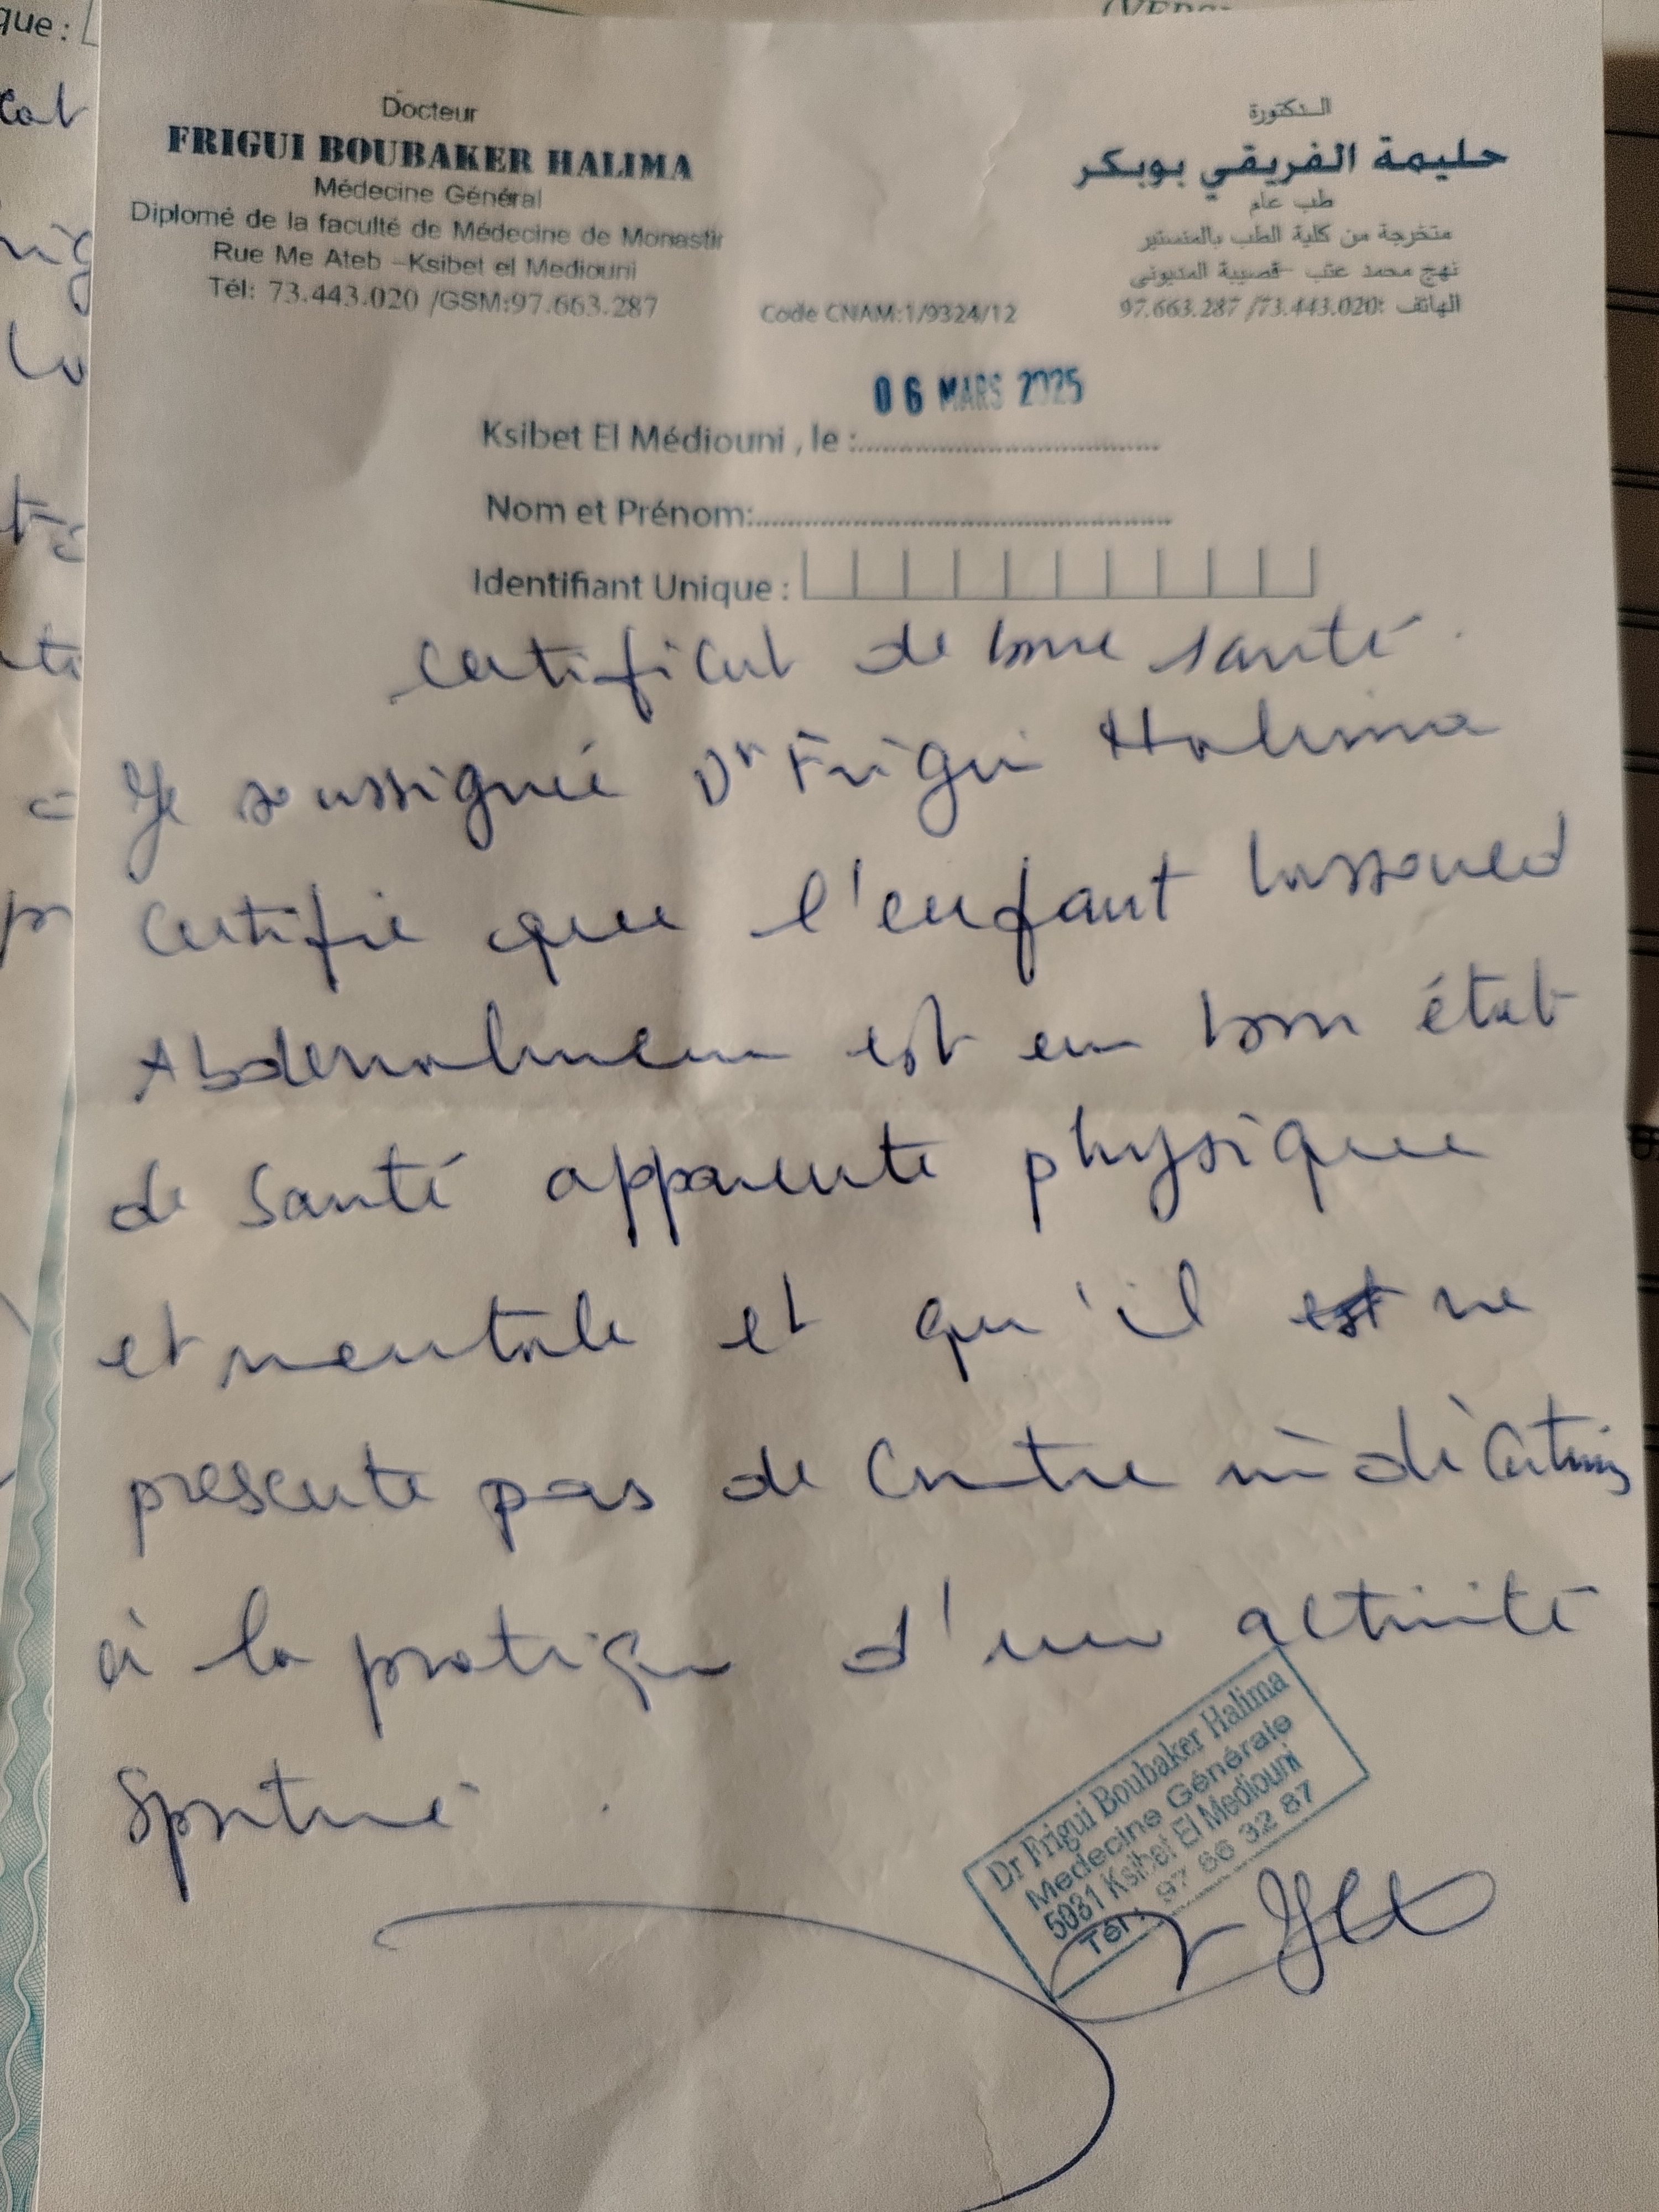 que :
Docteur
FRIGUI BOUBAKER HALIMA
Médecine Général
Diplomé de la faculté de Médecine de Monastir
Rue Me Ateb -Ksibet el Mediouni
Tél: 73.443.020 /GSM:97.663.287
Code CNAM:1/9324/12
الدكتورة
حليمة الفريقي بوبكر
طب عام
متخرجة من كلية الطب بالمنستير
نهج محمد عتب -قصيبة المديوني
الهاتف :97.663.287 /73.443.020
06 MARS 2025
Ksibet El Médiouni , le :
Nom et Prénom:
Identifiant Unique :
certificat de bonne santé.
Je soussignée Dr Frigui Halima
certifie que l'enfant Lassoued
est en bon état
de santé apparente physique
et mentale et qu'il ne
présente pas de contre indications
à la pratique d'une activité
sportive.
Dr Frigui Boubaker Halima
Medecine Générale
5031 Ksibet El Mediouni
Tél : 97 66 32 87